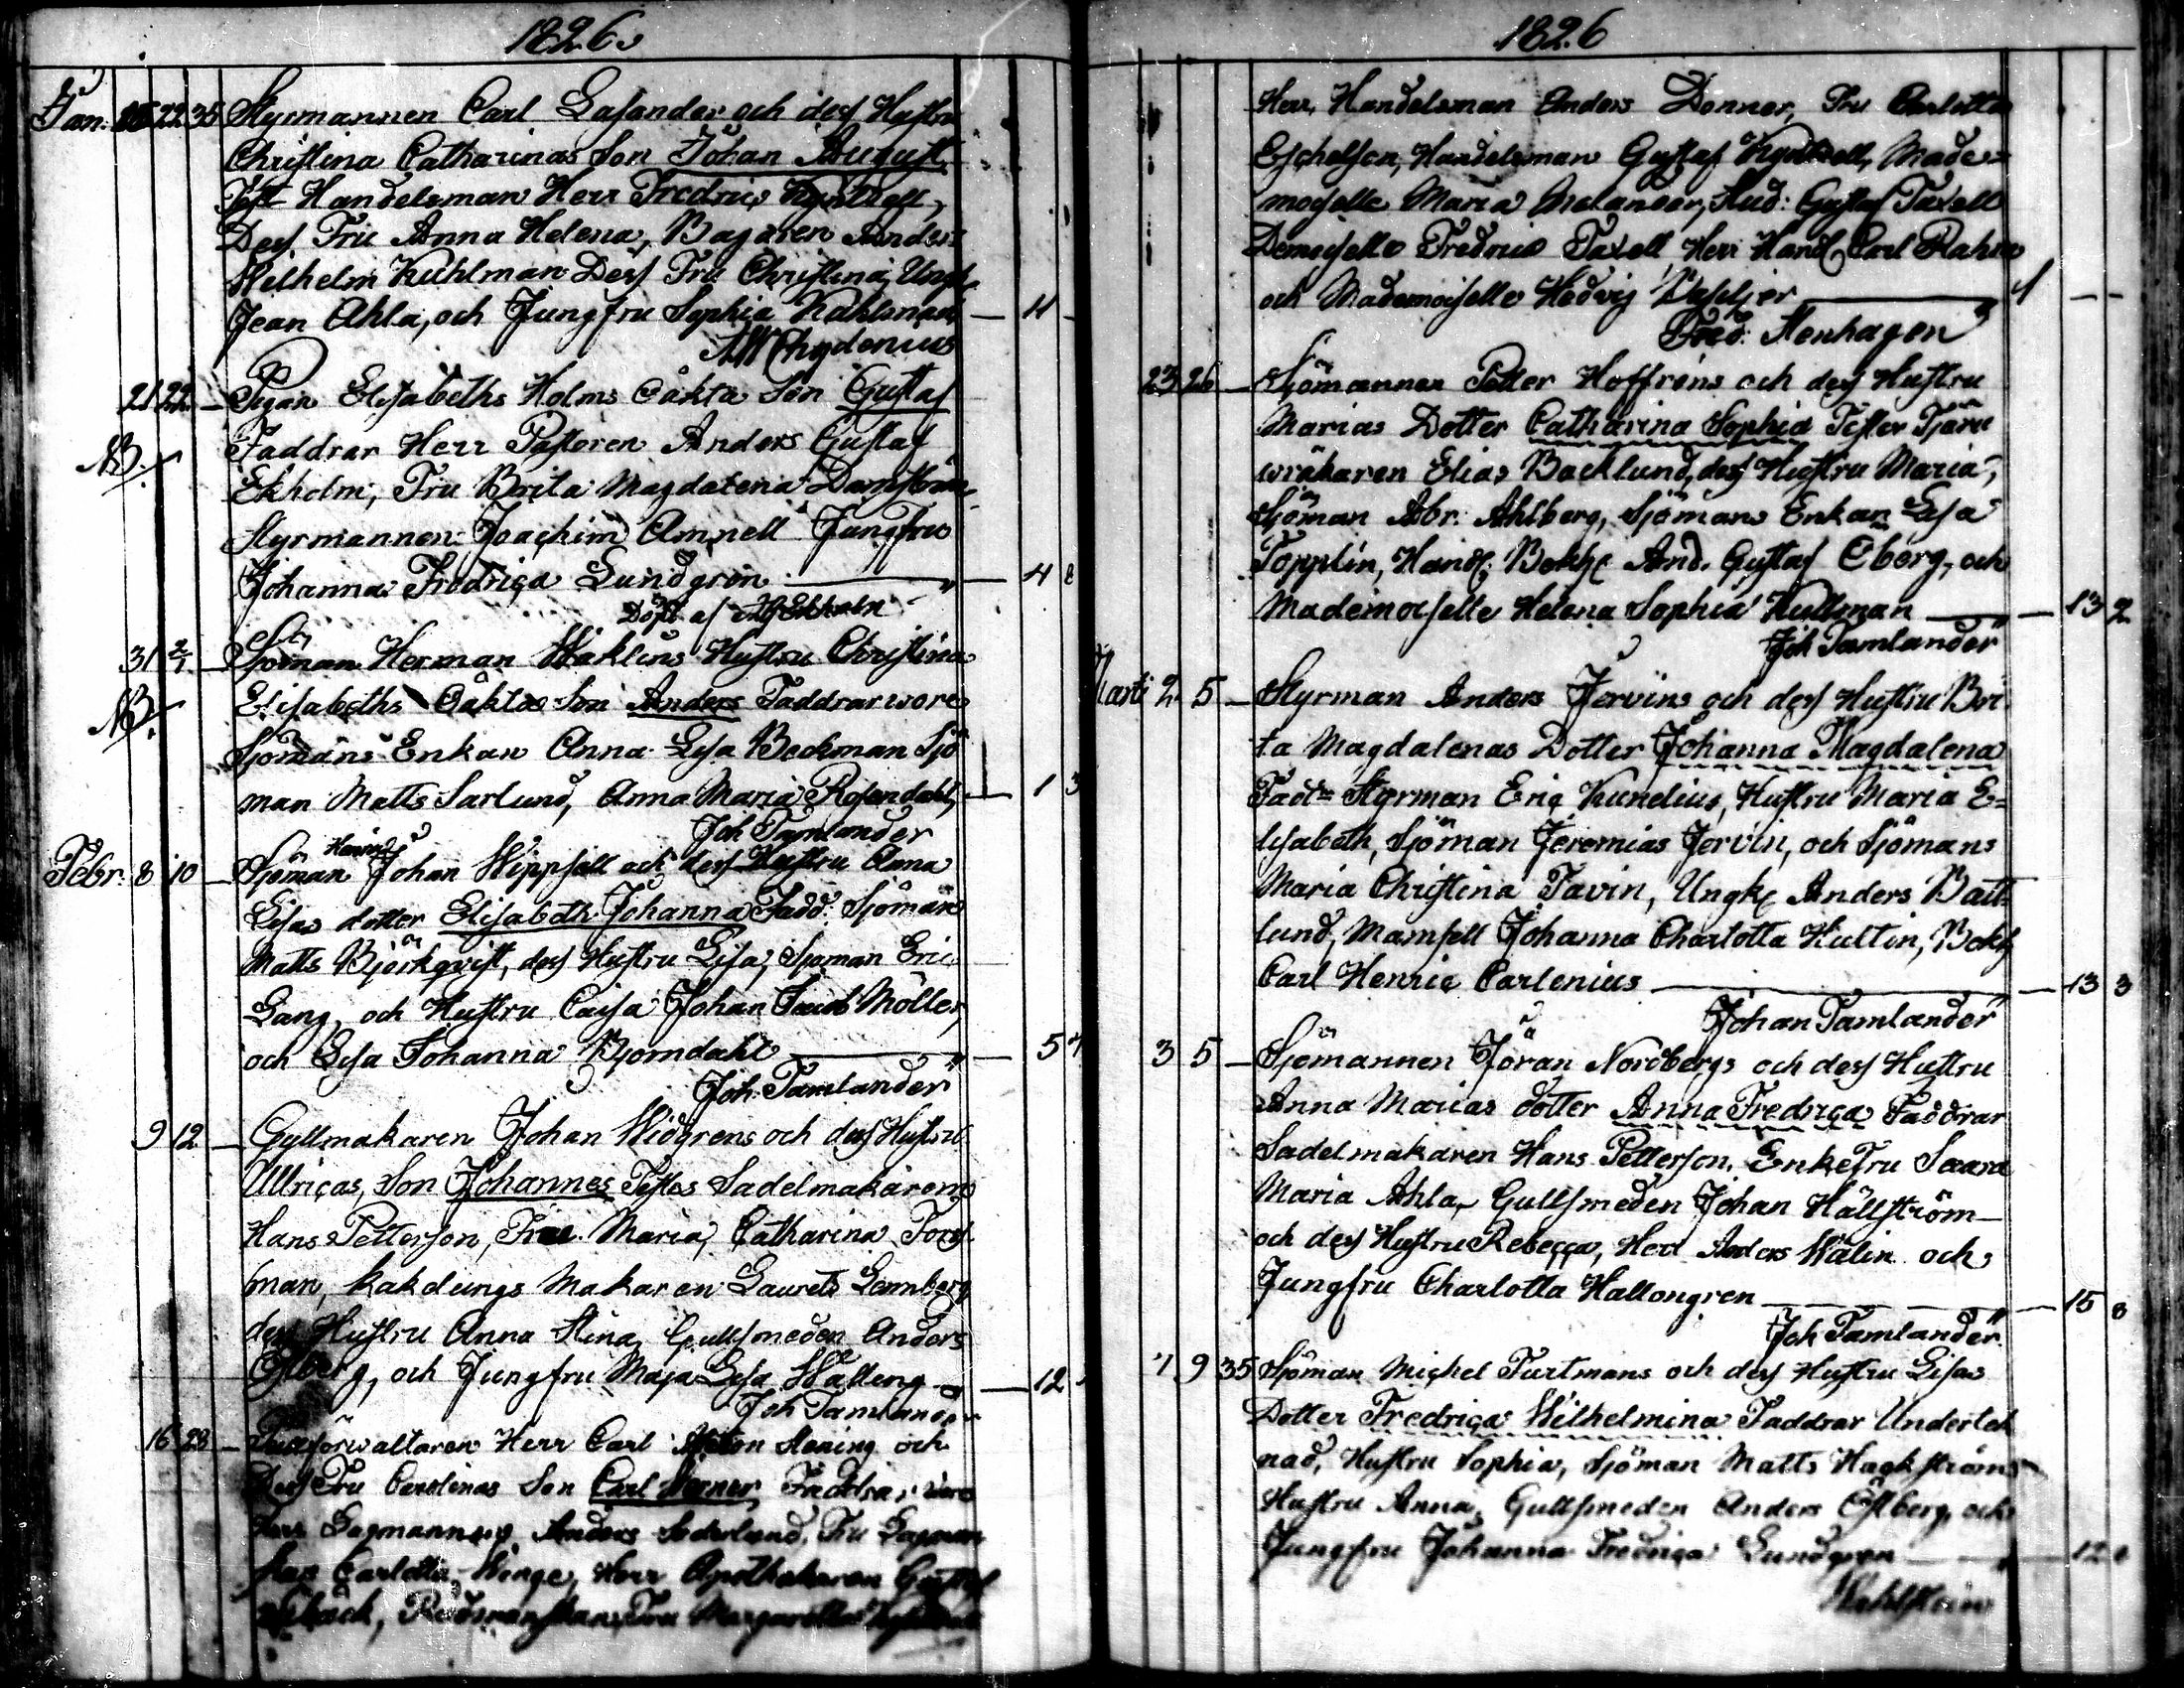 1826
Jan. 22 35 Styrmannen Carl Lasander och dess Hustru
Christina Catharinas Son Johan August
Test Handelsman Herr Fredric
Dess Fru Anna Helena, Bagaren Anders
Wilhelm Kuhlman Dess Fru Christina, Ungk
Jean Ahla, och Jungfru Sophia Kahlman — 4 -
Chydenius
21 22 — Pigan Elisabeths Holms Oäkta Son Gustaf
NB. Faddrar Herr Pastoren Anders Gustaf
Ekholm, Fru Brita Magdalena
Styrmannen Joachim Amnell Jungfru
Johanna Fredrica Lundgren — 4 8
Döpt af Ekholm
31 2/1 — Sjöman Herman Waklins Hustru Christina
NB. Elisabeths Oäkta Son Anders Faddrar wore
Sjömans Enkan Anna Lisa Backman Sjö
man Matts Sarlund, Anna Maria Rosendahl, — 1 3
Joh Tamlander
Febr. 8 10 — Sjöman Johan Wippsall och dess Hustru Anna
Lisas dotter Elisabeth Johanna Fadd: Sjöman
Matts Björkqvist, dess Hustru Lisa, Sjöman Eric
Lang, och Hustru Caisa Johan Jacob Möller,
och Lisa Johanna Bjorndahl — 5 4
Joh: Tamlander
9 12 — Gullmakaren Johan Widgrens och dess Hustru
Ulricas, Son Johannes Testes Sadelmakaren
Hans Petterson, Fru Maria, Catharina Fors
man, kakelungs Makaren Laurets Lennberg
dess Hustru Anna Stina, Gullsmeden Anders
Östberg, och Jungfru Maja Lisa — 12
Joh Tamlander
16 28 — Herr Carl och
Dess Fru Carolinas Son Carl Werner, Faddrar wore
Herr Lagmannen Anders Soderlund, Fru Lagman
skan Carlotta Winge, Herr Apothekaren Gustaf
Fru Margaretha
1826
Herr, Handelsman Anders Donner, Fru Carlotta
Eschelson, Handelsman Gustaf Made-
moiselle Maria Melander, Stud: Gustaf Taxell
Demoiselle Fredrica Taxell Herr Handl Carl Rahm
och Mademoiselle Hedvig — 4 --
Fred: Stenhagen
23 26 — Sjömannen Petter Hoffrens och dess Hustru
Marias Dotter Catharina Sophia Testes Tjäru
wräkaren Elias Backlund, dess Hustru Maria,
Sjöman Abr: Ahlberg, Sjömans Enkan Lisa
Topplin, Handl: Bokh And. Gustaf Öberg, och
Mademoiselle Helena Sophia Kullman — 13 2
Joh Tamlander
Marti 2 5 — Styrman Anders Jervins och dess Hustru Bri
ta Magdalenas Dotter Johanna Magdalena
Fadd= Styrman Eric Kunelius, Hustru Maria E=
lisabeth, Sjöman Jeremias Jervin, och Sjömans
Maria Christina Tavin, Ungk Anders Batt
lund, Mamsell Johanna Charlotta Hultin, Bokh
Carl Henric Carlenius — 13 3
Johan Tamlander
3 5 — Sjömannen Jöran Nordbergs och dess Hustru
Anna Marias dotter Anna Fredrica Faddrar
Sadelmakaren Hans Petterson, Enkefru Saara
Maria Ahla, Gullsmeden Johan Hällström
och dess Hustru Rebecca, Herr Anders Walin och
Jungfru Charlotta Hallongren — 15 8
Joh Tamlander
7 9 35 Sjöman Michel Furtmans och dess Hustru Lisas
Dotter Fredrica Wilhelmina Faddrar Underteck
nad, Hustru Sophia, Sjöman Matts Hagkströms
Hustru Anna, Gullsmeden Anders Östberg, och
Jungfru Johanna Fredrica Lundgren — 12
Wahlstein